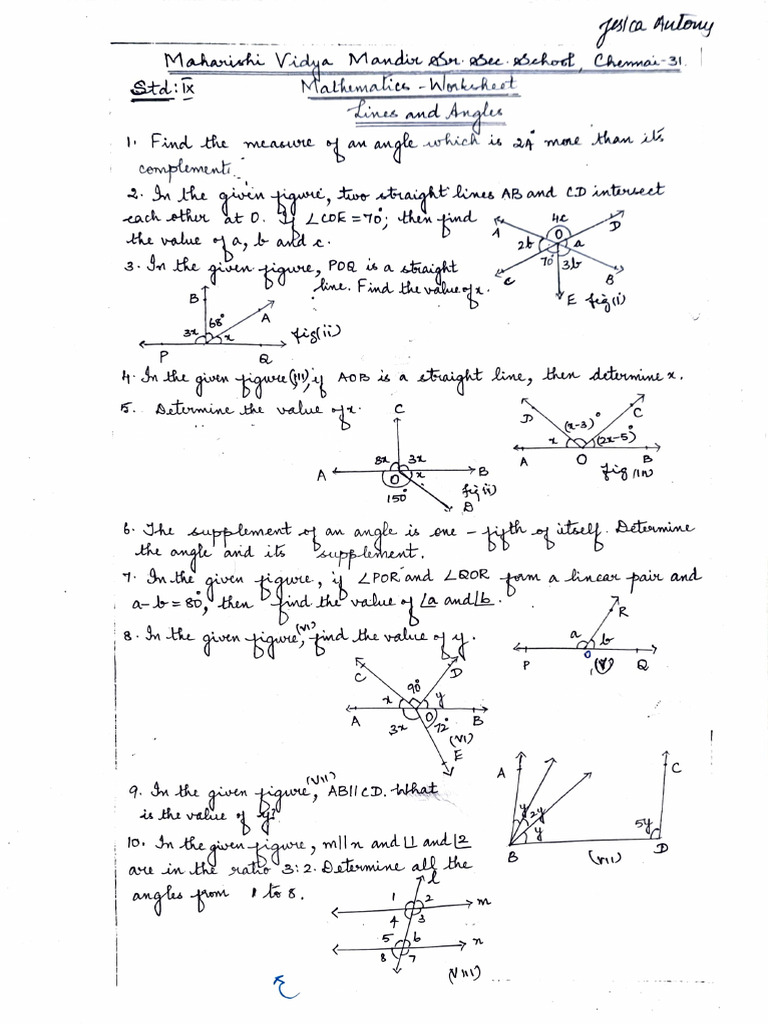 Jesica Antony
Maharishi Vidya Mandir Sr. Sec. School, Chennai-31.
Std: IX
Mathematics - Worksheet
Lines and Angles
1. Find the measure of an angle which is 24° more than its
complement.
2. In the given figure, two straight lines AB and CD intersect
each other at O. If ∠COE = 70°; then find
the value of a, b and c.
A 4c D
2b O a
70° 3b
C B
E fig(i)
3. In the given figure, POQ is a straight
line. Find the value of x.
B
68° A
3x x fig(ii)
P Q
4. In the given figure(III), if AOB is a straight line, then determine x.
5. Determine the value of x.
C
8x 3x
A O x B
150° fig(ii)
D
D C
(x-3)°
x (2x-5)°
A O B
fig
6. The supplement of an angle is one - fifth of itself. Determine
the angle and its supplement.
7. In the given figure, if ∠POR and ∠QOR form a linear pair and
a-b = 80°, then find the value of ∠a and ∠b.
R
a b
P O Q
(V)
8. In the given figure,(VI) find the value of y.
C D
90°
x y
A O B
3x 72°
(VI)
E
9. In the given figure(VII), AB∥CD. What
is the value of y?
A C
y 2y
y 5y
B D
(VII)
10. In the given figure, m∥n and ∠1 and ∠2
are in the ratio 3:2. Determine all the
angles from 1 to 8.
l
1 2 m
4 3
5 6 n
8 7
(VIII)